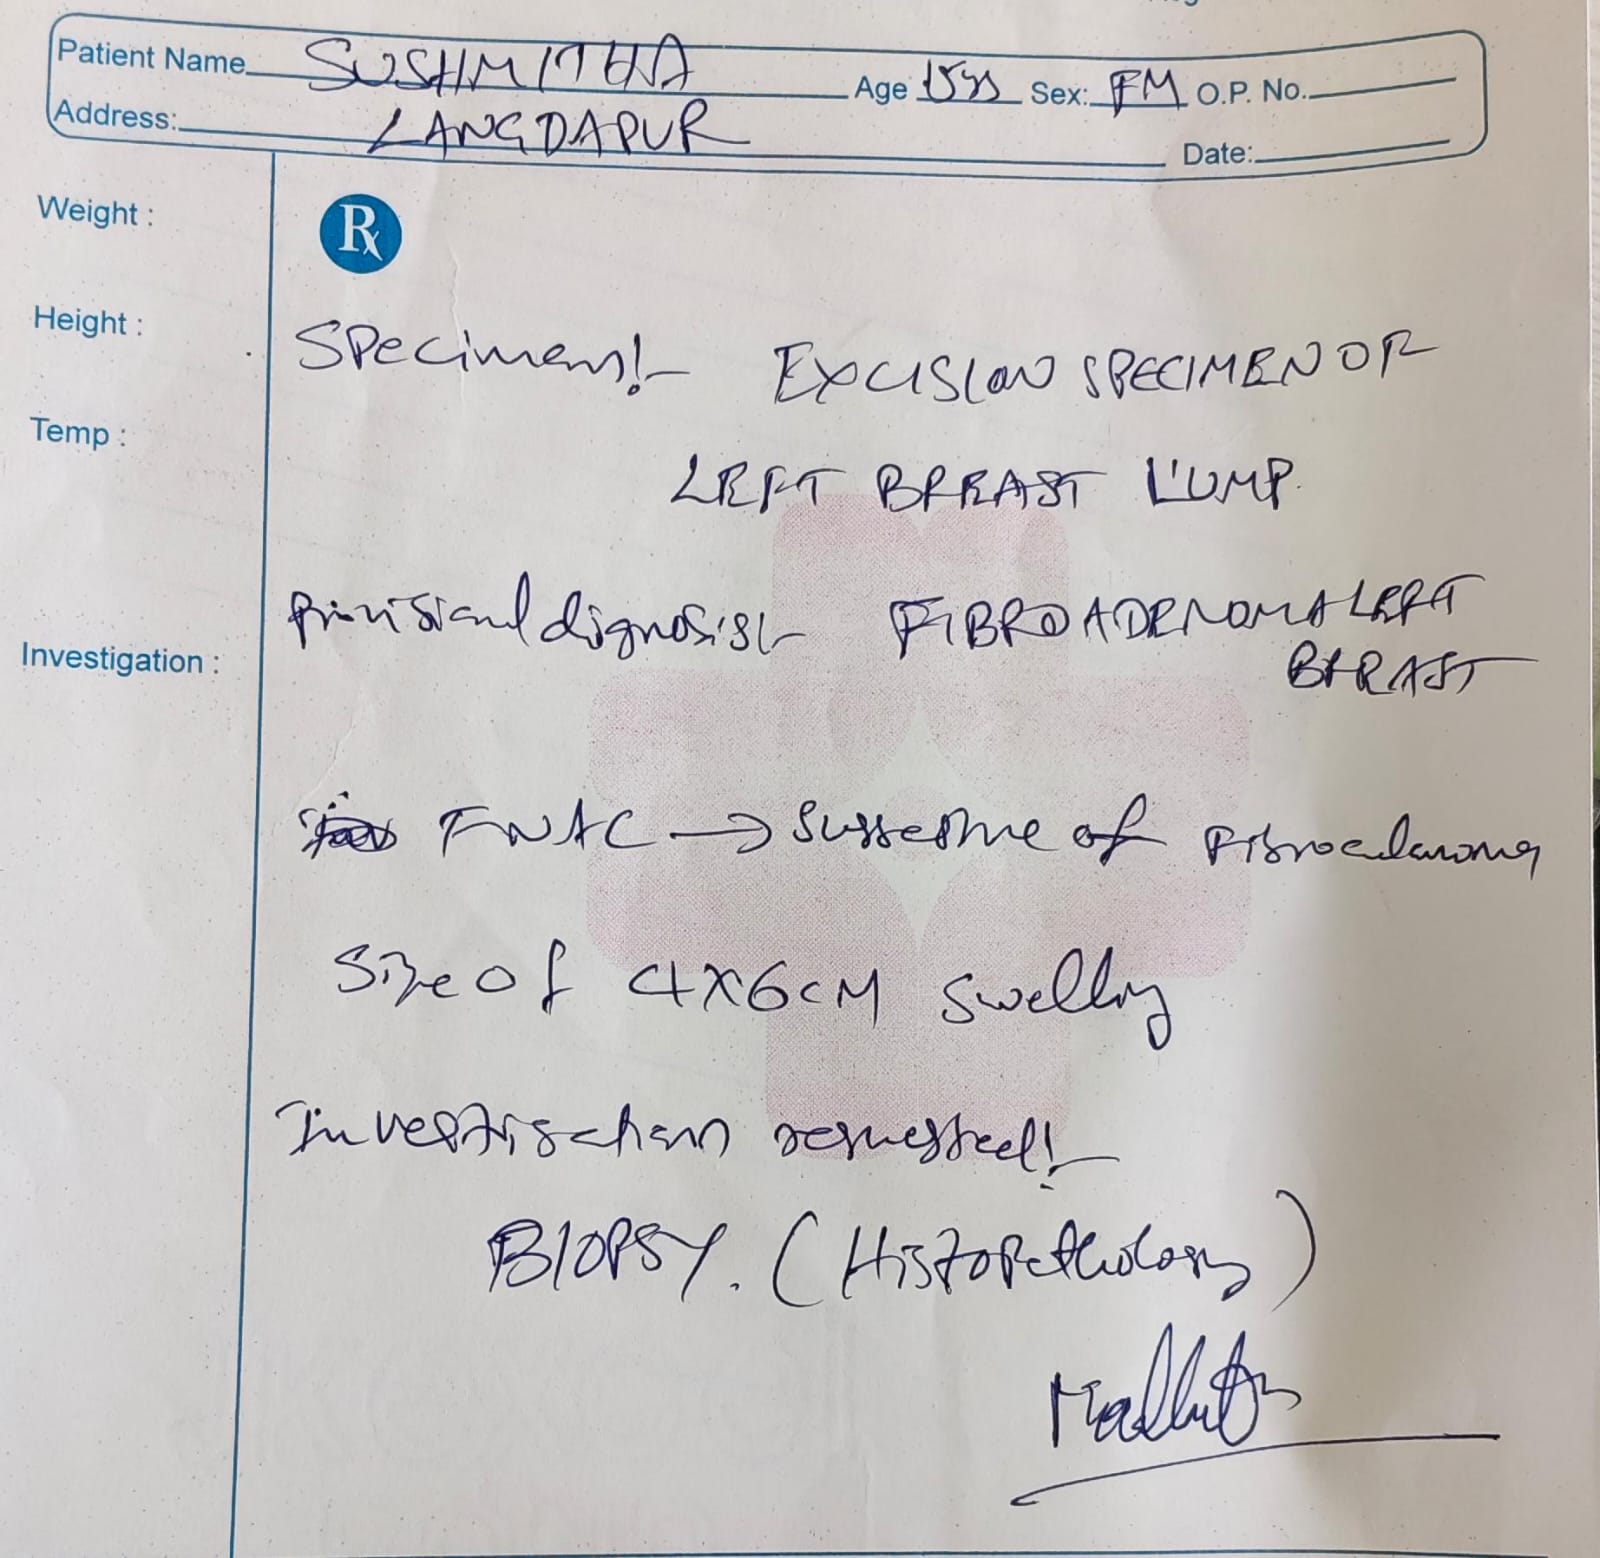 Patient Name SUSHMITHA Age 15yrs Sex: FM O.P. No.
Address: LANGDAPUR Date:
Weight :
Rx
Height :
Specimen:- EXCISION SPECIMEN OF
Temp :
LEFT BREAST LUMP.
Provisional diagnosis:- FIBROADENOMA LEFT
BREAST
Investigation :
FNAC → Suggestive of Fibroadenoma
Size of 4X6CM Swelling
Investigation requested:-
BIOPSY. (Histopathology)